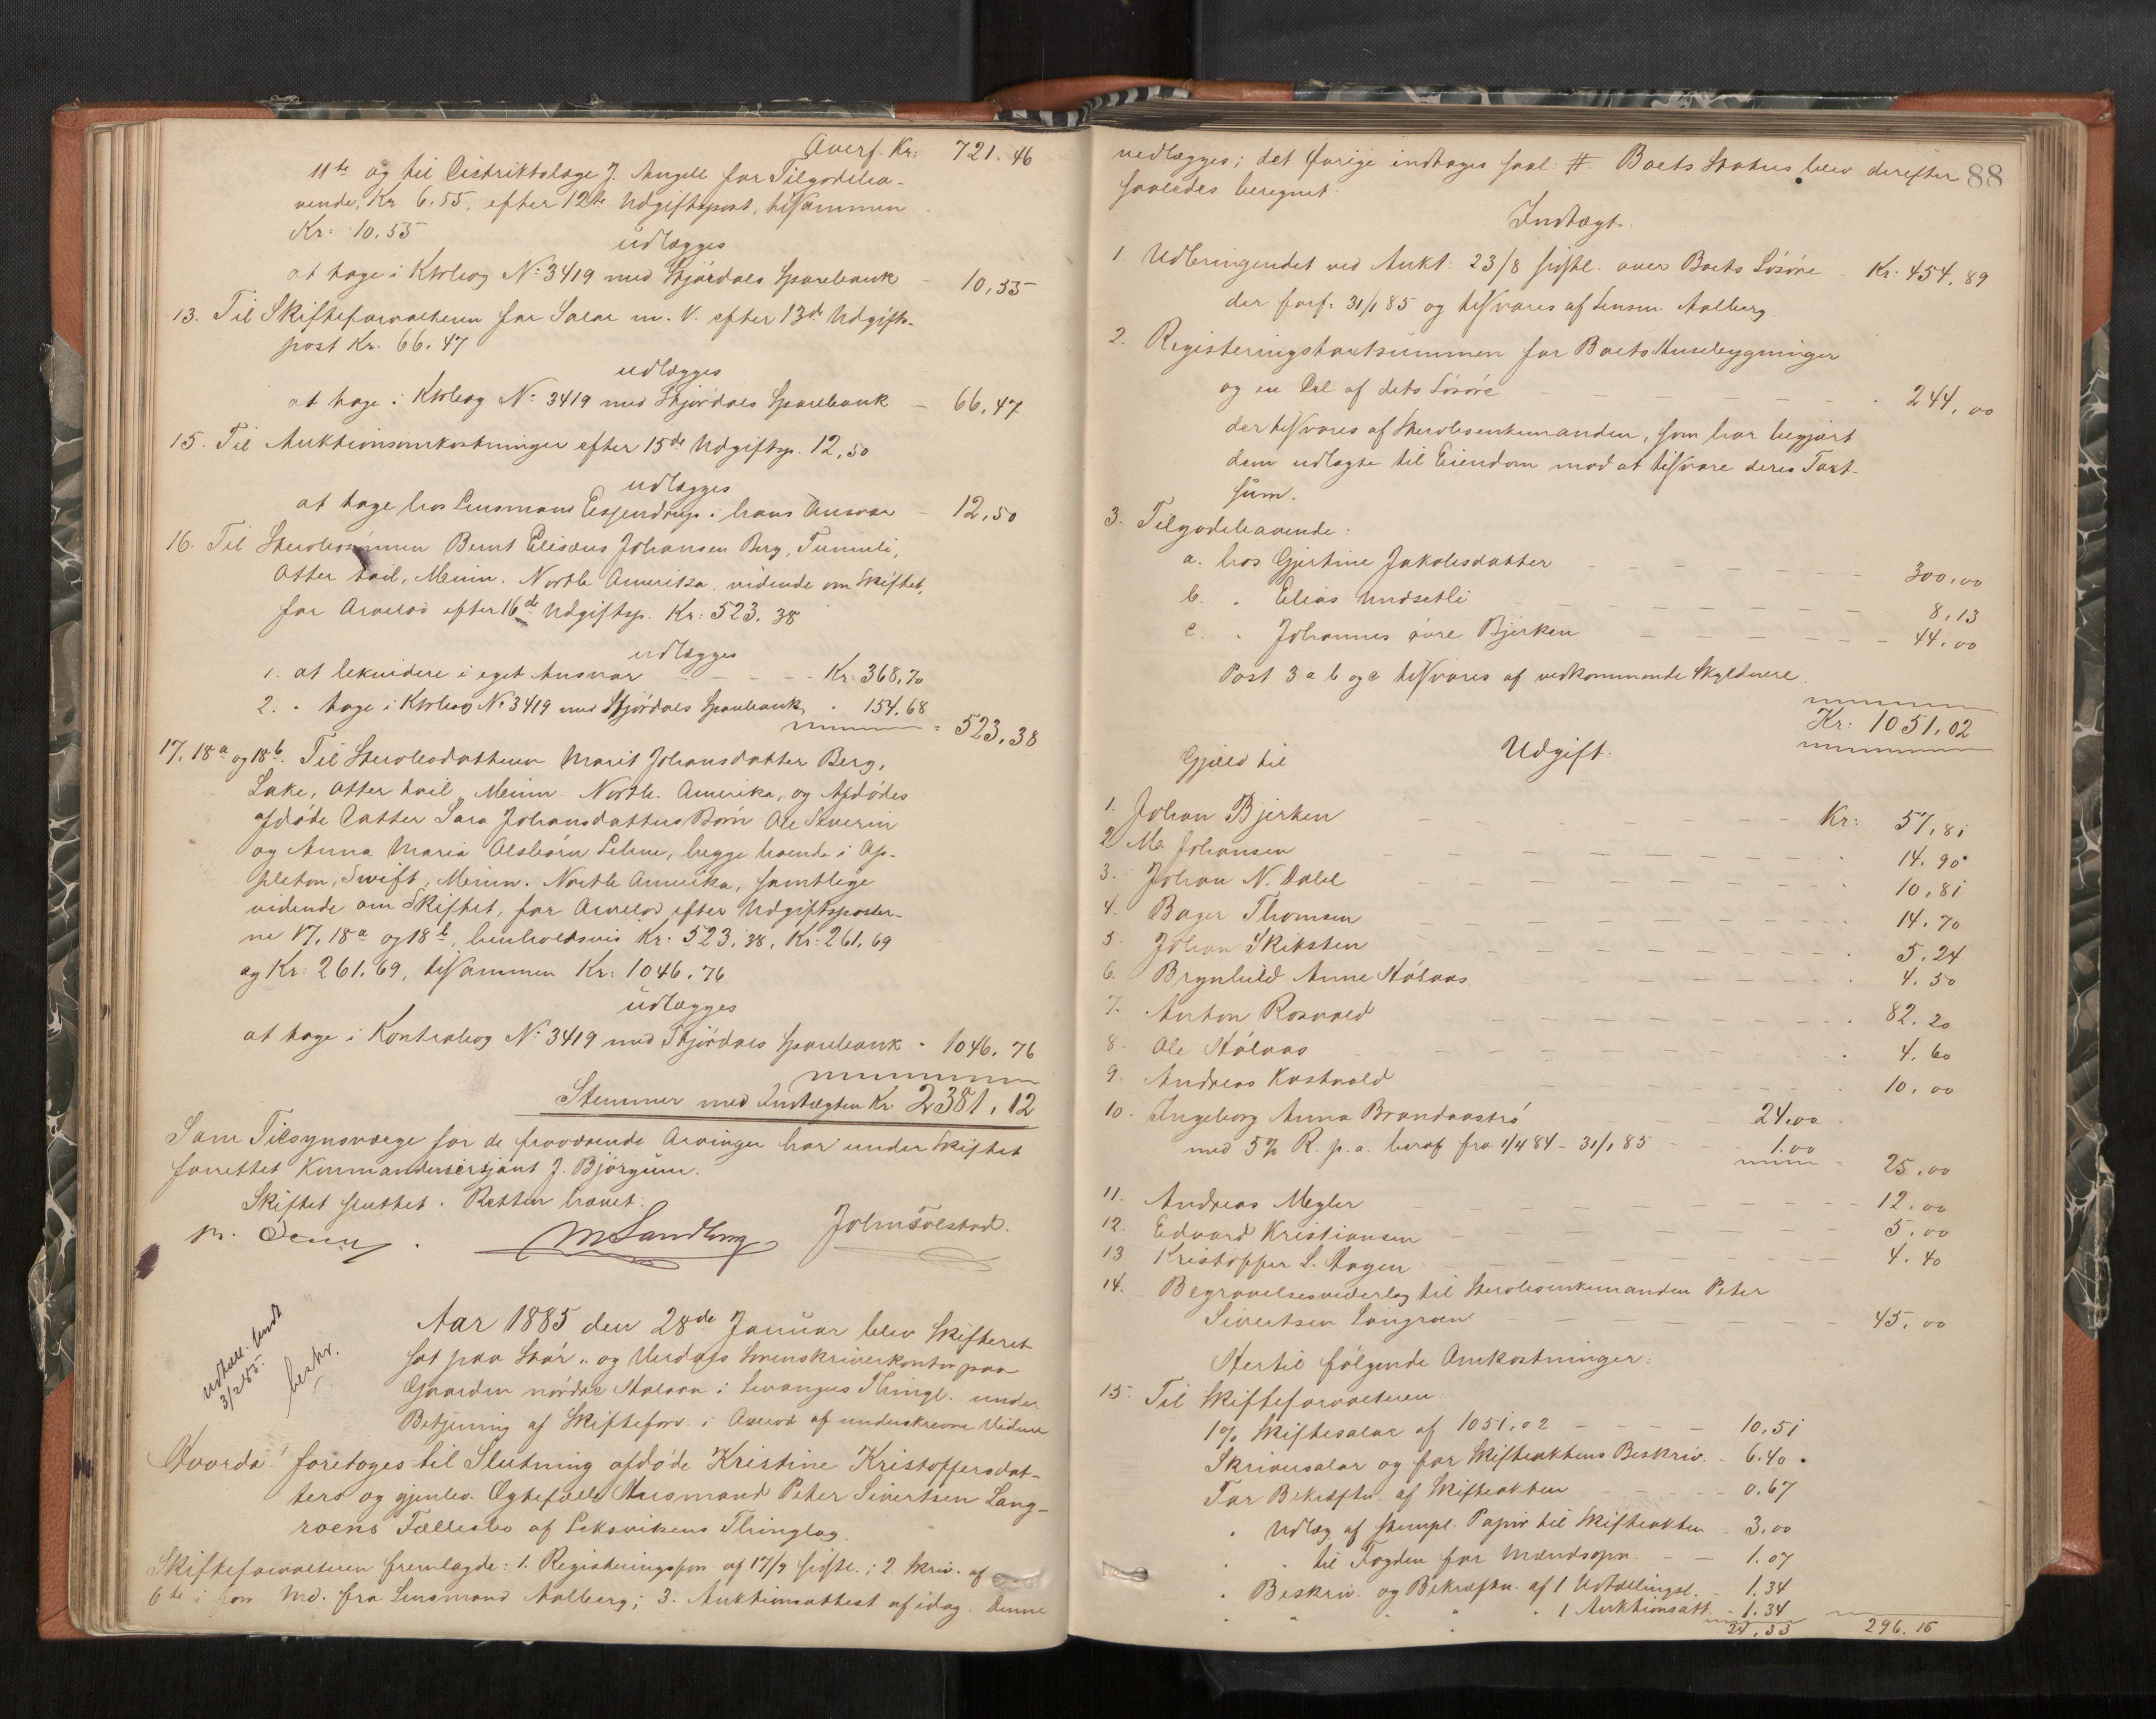 Overf. Kr: 721.46
11te og til Distriktslæge J. Angell for Tilgodeha-
vende, Kr 6.55, efter 12te Udgiftspost, tilsammen
Kr: 10.55
udlægges
at tage i Ktrbog No: 3419 med Stjørdals Sparebank - 10,55
13. Til Skifteforvalteren for Salar m. V. efter 13de Udgifts-
post Kr. 66.47
udlægges
at tage i Ktrbog No: 3419 med Stjørdals Sparebank - 66,47
15. Til Auktionsomkostninger efter 15de Udgiftsp. 12,50
udlægges
at tage hos Lensmand Essendrop i hans Ansvar - 12,50
16. Til Stervbosønnen Bernt Elisæus Johansen Berg, Tumuli,
Otter tail, Minn. North Amerika vidende om Skiftet,
for Arvelod efter 16de Udgiftsp. Kr: 523.38
udlægges
1. at lekvidere i eget Ansvar - - - - Kr: 368,70
2. " tage i Ktrbog No 3419 med Stjørdals Sparebank " 154.68
= 523,38
17, 18a og 18b. Til Stervbodatteren Marit Johansdatter Berg,
Lake, Otter tail, Minn. North. Amerika, og Afdødes
afdøde Datter Sara Johansdatters Børn Ole Severin
og Anna Maria Olsbørn Lehne, begge boende i Ap-
pleton, Swift, Minn. North Amerika, samtlige
vidende om Skiftet, for Arvelod efter Udgiftsposter-
ne 17, 18a og 18b, henholdsvis Kr: 523,38, Kr: 261,69
og Kr: 261.69, tilsammen Kr: 1046.76
udlægges
at tage i Kontrabog No: 3419 med Stjørdals Sparebank - 1046.76
Stemmer med Indtægten Kr 2381,12
Som Tilsynsværge for de fraværende Arvinger har under Skiftet
forrettet Kommandersersjant J. Bjørgum.
Skiftet sluttet. Retten hævet.
M Sandberg John Folstad.
Udtæll. sendt
3/2 85.
beskr.
Aar 1885 den 28de Januar blev Skifteret
sat paa Stør- og Værdals Sorenskriverkontor paa
Gaarden nordre Staloa i Levangers Thingl. under
Betjening af Skifteforv. i Overvær af underskrevne Vidner
Hvorda! foretoges til Slutning afdøde Kristine Kristoffersdat-
ters og gjenlev. Ægtefælle Husmand Peter Sivertsen Lang-
roens Fællesbo af Leksvikens Thinglag.
Skifteforvalteren fremlagde: 1. Registeringsforr. af 17/7 sidstl.; 2. Skriv. af
6te i forr. Md. fra Lensmand Aalberg; 3. Auktionsattest af idag. Denne
88
vedlægges; det øvrige indtages saal. #. Boets Status blev derefter
saaledes beregnet:
Indtægt.
1. Udbringendet ved Aukt. 23/8 sidstl. over Boets Løsøre - Kr: 454.89
der forf: 31/1 85 og tilsvares af Lensm. Aalberg.
2. Registeringstaxtsummen for Boets Husebygninger
og en Del af dets Løsøre - - - - - 244,00
der tilsvares af Stervboenkemanden, som har begjært
dem udlagte til Eiendom mod at tilsvare deres Taxt-
sum.
3. Tilgodehavende:
a. hos Gjertine Jakobsdatter - - - - 300,00
b. " Elias Undsetli - - - - 8,13
c. " Johannes øvre Bjerken - - - - 44.00
Post 3 a b og c tilsvares af vedkommende Skyldnere.
Kr: 1051,02
Udgift.
Gjæld til
1. Johan Bjerken - - - Kr: 57,81
2 M. Johansen - - - 14.90
3. Johan N. Dahl - - - 10,81
4. Bager Thomsen - - - 14.70
5. Johan Skiksten - - - 5.24
6. Brynhild Anne Hålaas - - - 4.50
7. Anton Rosvold - - - 82.20
8. Ole Hålaas - - - 4.60
9. Andreas Kastvold - - - 10.00
10. Ingeborg Anna Brandaastrø - - 24,00
med 5% R. p. a. heraf fra 1/4 84 - 31/1 85 - 1.00
= 25.00
11. Andreas Megler - - - 12.00
12. Edvard Kristiansen - - - 5.00
13 Kristoffer L. Hagen - - - 4.40
14. Begravelsesvederlag til Stervboenkemanden Peter
Sivertsen Langroen - - - 45,00
Hertil følgende Omkostninger:
15. Til Skifteforvalteren:
1% Skiftesalar af 1051,02 - - - 10,51
Skriversalar og for Skifteaktens Beskriv. - 6.40
For Bekræftn. af Skifteakten - - - 0.67
" Udlæg af stempl. Papir til Skifteakten - 3.00
" " til Fogden for Mændsopn. - - 1.07
" Beskriv. og Bekræftn. af 1 Udtællingsl. - 1.34
" " " " " 1 Auktionsatt. - 1.34
24.33 296.16